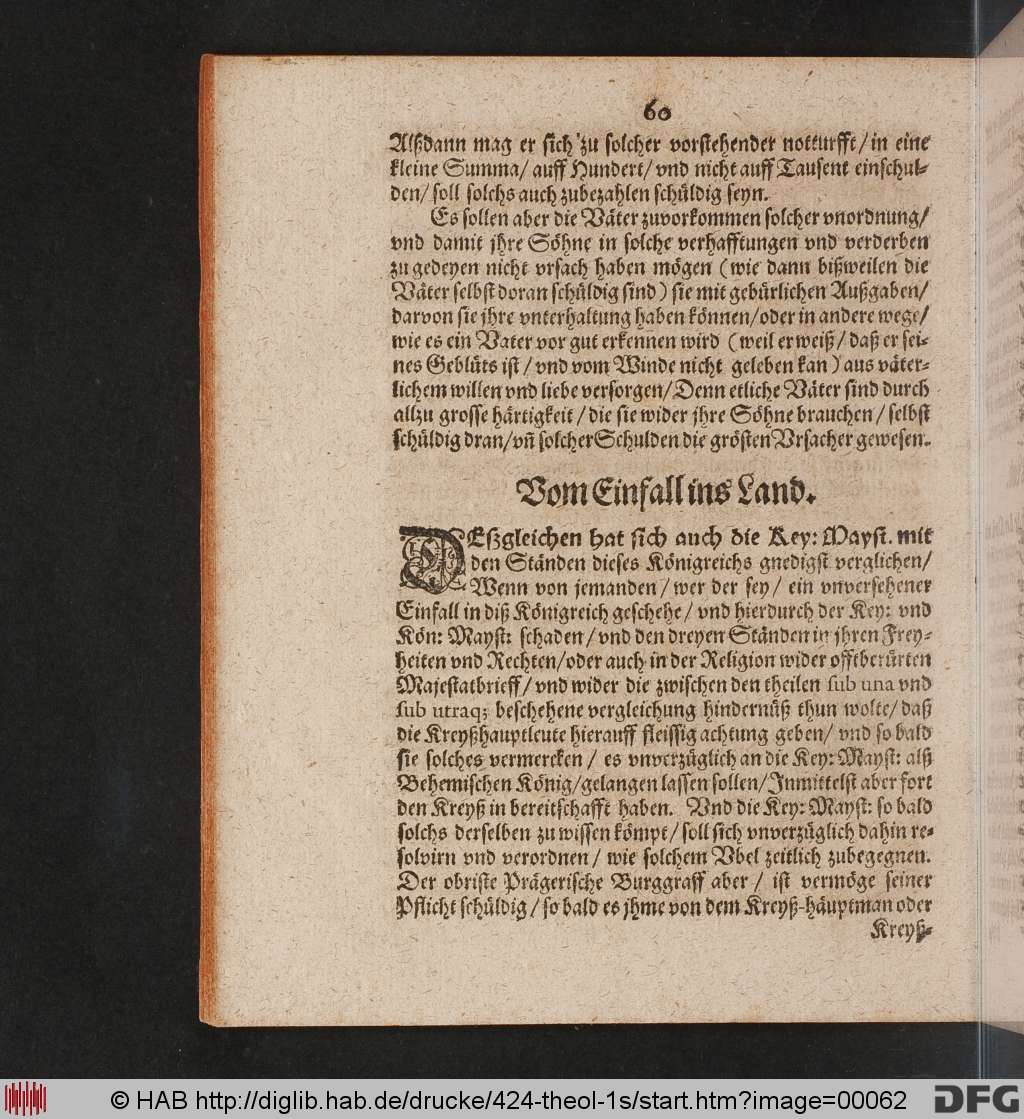 60
Alßdann mag er sich zu solcher vorstehender notturfft/ in eine
kleine Summa/ auff Hundert/ vnd nicht auff Tausent einschul-
den/ soll solchs auch zubezahlen schüldig seyn.
Es sollen aber die Väter zuvorkommen solcher vnordnung/
vnd damit jhre Söhne in solche verhafftungen vnd verderben
zu gedeyen nicht vrsach haben mögen (wie dann bißweilen die
Väter selbst doran schüldig sind) sie mit gebürlichen Außgaben/
darvon sie jhre vnterhaltung haben können/ oder in andere wege/
wie es ein Vater vor gut erkennen wird (weil er weiß/ daß er sei-
nes Geblüts ist/ vnd vom Winde nicht geleben kan) aus väter-
lichem willen vnd liebe versorgen/ Denn etliche Väter sind durch
allzu grosse härtigkeit/ die sie wider jhre Söhne brauchen/ selbst
schüldig dran/ vñ solcher Schulden die grösten Vrsacher gewesen.
Vom Einfall ins Land.
DEßgleichen hat sich auch die Key: Mayst. mit
den Ständen dieses Königreichs gnedigst verglichen/
Wenn von jemanden/ wer der sey/ ein vnversehener
Einfall in diß Königreich geschehe/ vnd hierdurch der Key: vnd
Kön: Mayst: schaden/ vnd den dreyen Ständen in jhren Frey-
heiten vnd Rechten/ oder auch in der Religion wider offtberürten
Majestatbrieff/ vnd wider die zwischen den theilen sub una vnd
sub utraq; beschehene vergleichung hindernüß thun wolte/ daß
die Kreyßhauptleute hierauff fleissig achtung geben/ vnd so bald
sie solches vermercken/ es vnverzüglich an die Key: Mayst: alß
Behemischen König/ gelangen lassen sollen/ Inmittelst aber fort
den Kreyß in bereitschafft haben. Vnd die Key: Mayst: so bald
solchs derselben zu wissen kömpt/ soll sich vnverzüglich dahin re-
solvirn vnd verordnen/ wie solchem Vbel zeitlich zubegegnen.
Der obriste Prägerische Burggraff aber/ ist vermöge seiner
Pflicht schüldig/ so bald es jhme von dem Kreyß-häuptman oder
Kreyß-
© HAB http://diglib.hab.de/drucke/424-theol-1s/start.htm?image=00062
DFG